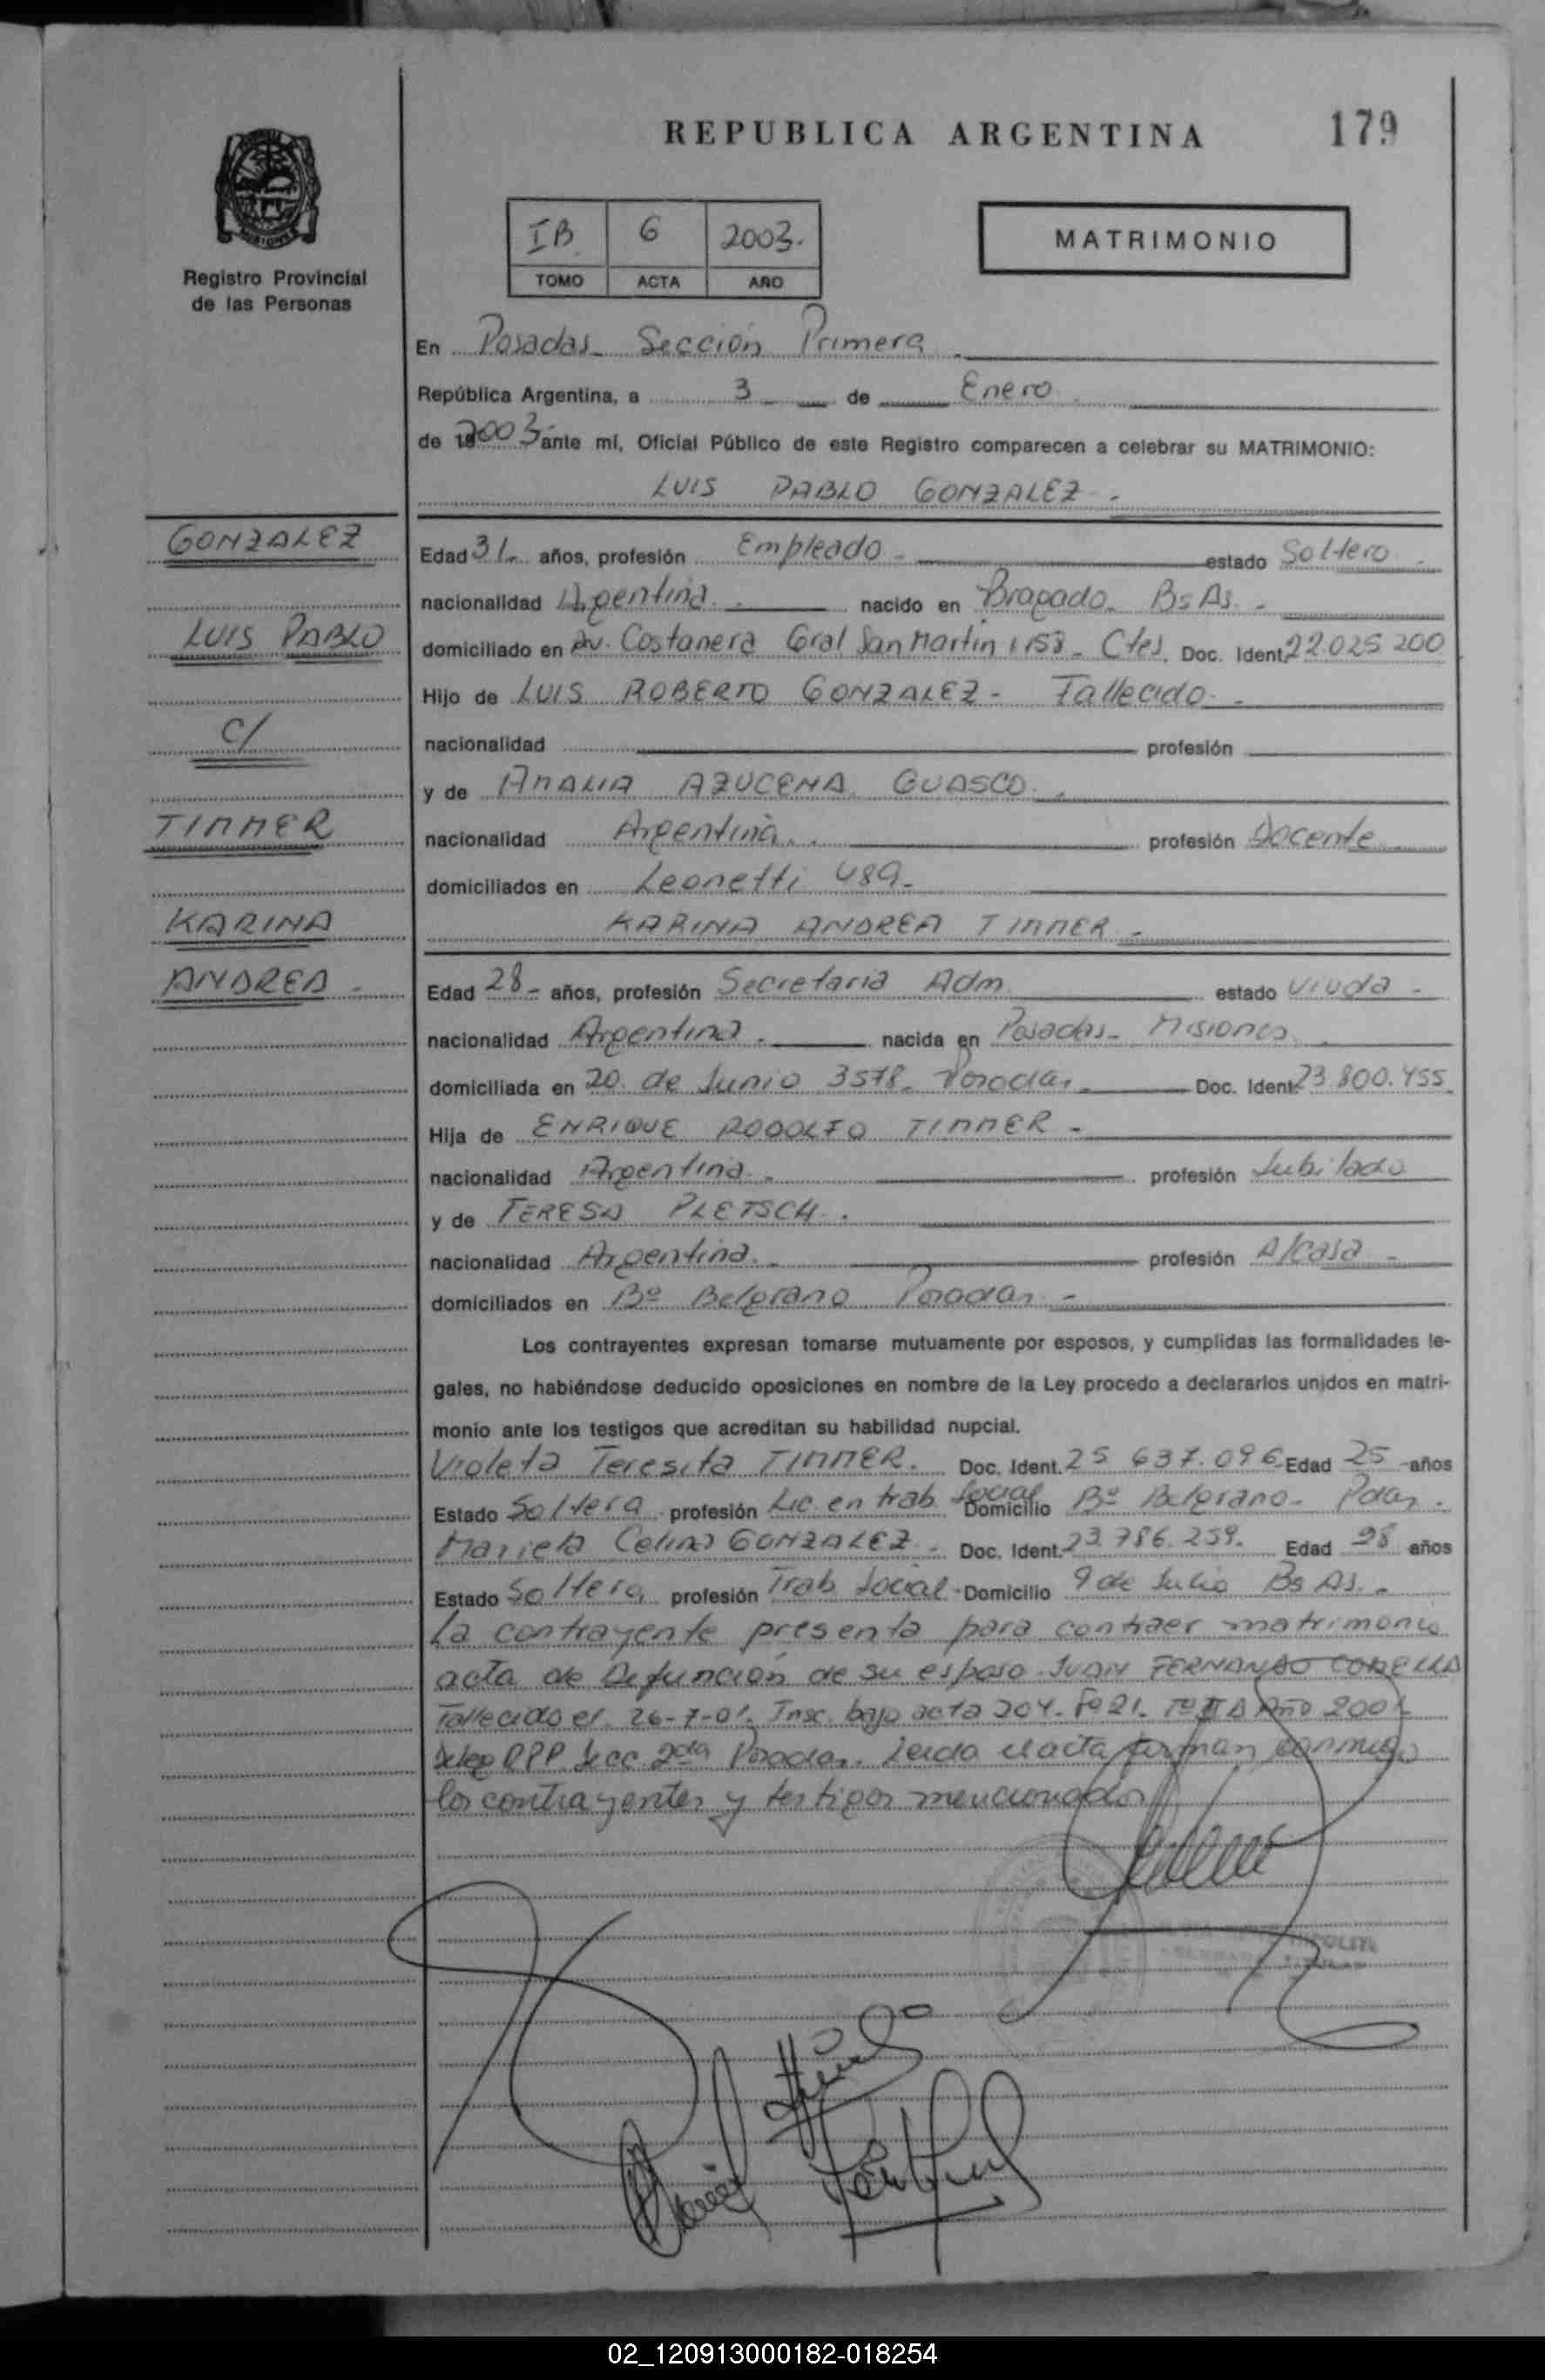 REPUBLICA ARGENTINA
179
MISIONES
Registro Provincial
de las Personas
IB 6 2003.
TOMO ACTA AÑO
MATRIMONIO
En Posadas Sección Primera
República Argentina, a 3 de Enero
de 2003 ante mí, Oficial Público de este Registro comparecen a celebrar su MATRIMONIO:
LUIS PABLO GONZALEZ
GONZALEZ
LUIS PABLO
C/
TIMMER
KARINA
ANDREA
Edad 31 años, profesión Empleado estado Soltero
nacionalidad Argentina nacido en Bragado Bs As.
domiciliado en Av. Costanera Gral San Martin 1158 Ctes. Doc. Ident. 22.025 200
Hijo de LUIS ROBERTO GONZALEZ - Fallecido
nacionalidad profesión
y de AMALIA AZUCENA GUASCO
nacionalidad Argentina profesión Docente
domiciliados en Leonetti 489
KARINA ANDREA TIMMER
Edad 28 años, profesión Secretaria Adm estado Viuda
nacionalidad Argentina nacida en Posadas Misiones
domiciliada en 20 de Junio 3578 Posadas Doc. Ident. 23.800.455
Hija de ENRIQUE RODOLFO TIMMER
nacionalidad Argentina profesión Jubilado
y de TERESA PLETSCH
nacionalidad Argentina profesión A/casa
domiciliados en Bº Belgrano Posadas
Los contrayentes expresan tomarse mutuamente por esposos, y cumplidas las formalidades le-
gales, no habiéndose deducido oposiciones en nombre de la Ley procedo a declararlos unidos en matri-
monio ante los testigos que acreditan su habilidad nupcial.
Violeta Teresita TIMMER. Doc. Ident. 25 637.096 Edad 25 años
Estado Soltera profesión Lic en trab. Social Domicilio Bº Belgrano Pdas
Mariela Celina GONZALEZ Doc. Ident. 23.786.259. Edad 28 años
Estado Soltera profesión Trab Social Domicilio 9 de Julio Bs As.
La contrayente presenta para contraer matrimonio
acta de Defunción de su esposo JUAN FERNANDO
Fallecido el 26-7-01. Insc. bajo acta 204 Fº 21 Tº II D Año 2001
Deleg RPP Secc 2da Posadas. Leida el acta firman conmigo
los contrayentes y testigos mencionados
02_120913000182-018254